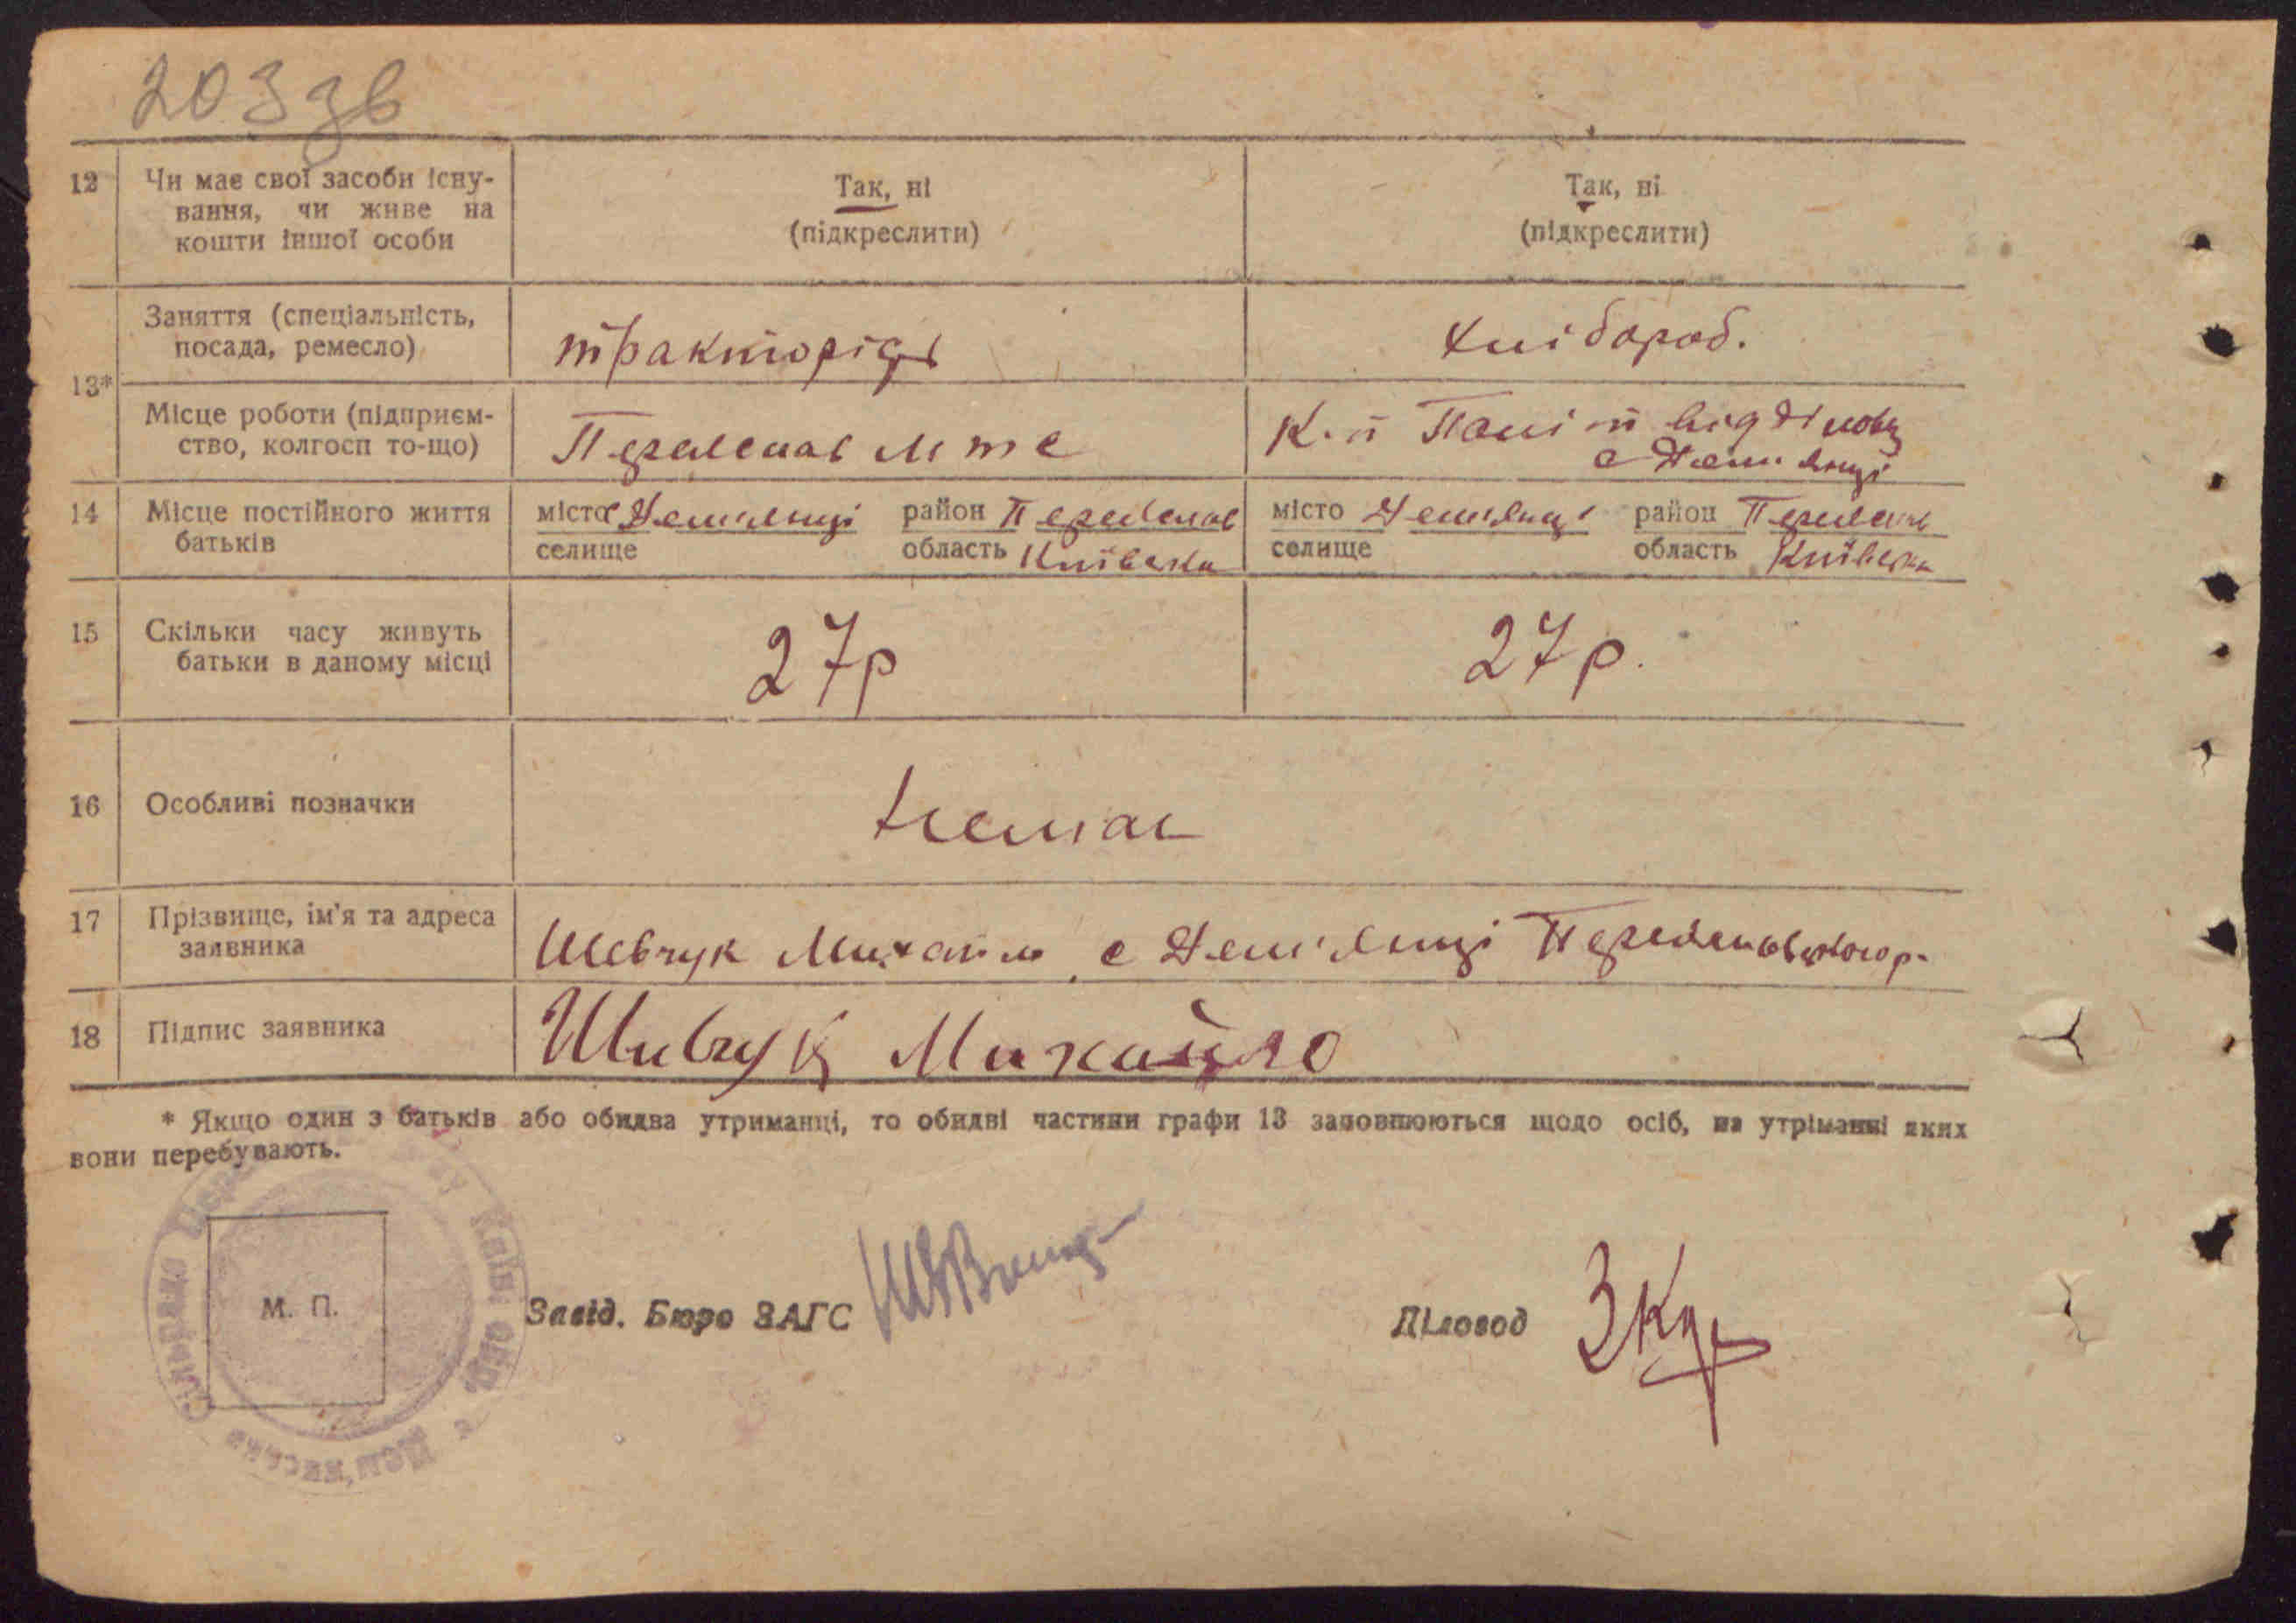 203 зв
12 Чи має свої засоби існу-
вання, чи живе на
кошти іншої особи
Так, ні
(підкреслити)
Так, ні
(підкреслити)
13*
Заняття (спеціальність,
посада, ремесло)
тракторіст
хлібороб.
Місце роботи (підприєм-
ство, колгосп то-що)
Переяслав мтс
К.п Політвідділовц
с Дем'янці
14 Місце постійного життя
батьків
місто Дем'янці район Переяслав
селище область Київська
місто Дем'янці район Переяслав
селище область Київська
15 Скільки часу живуть
батьки в даному місці
27р
27р.
16 Особливі позначки
Немає
17 Прізвище, ім'я та адреса
заявника
Шевчук Михайло с Дем'янці Переяславського р.
18 Підпис заявника
Шивчук Михайло
* Якщо один з батьків або обидва утриманці, то обидві частини графи 13 заповнюються щодо осіб, на утріманні яких
вони перебувають.
М. П.
Завід. Бюро ЗАГС
Діловод